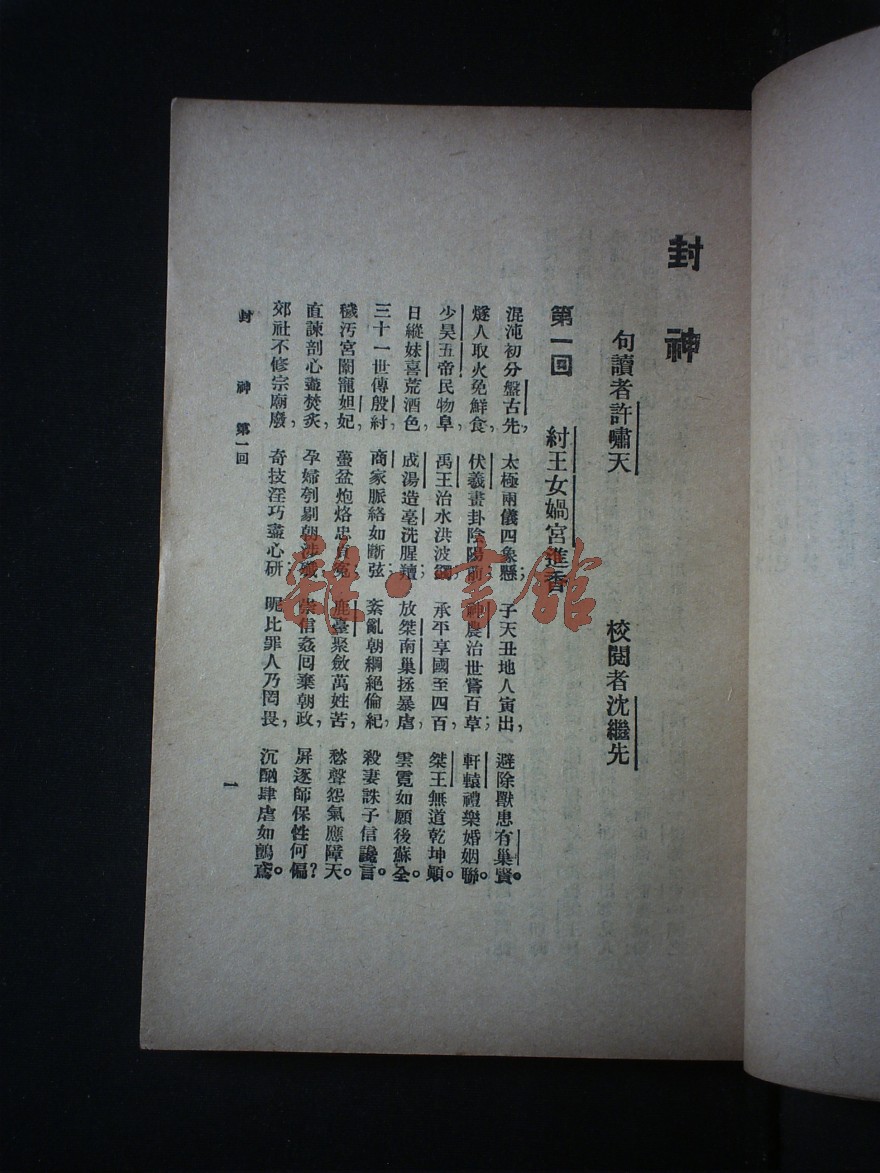 封神
句讀者許嘯天
校閱者沈繼先
第一回 紂王女媧宮進香
混沌初分盤古先，太極兩儀四象懸；子天丑地人寅出，避除獸患有巢賢。
燧人取火免鮮食，伏羲畫卦陰陽前；神農治世嘗百草，軒轅禮樂婚姻聯。
少昊五帝民物阜，禹王治水洪波蠲；承平享國至四百，桀王無道乾坤顛。
日縱妹喜荒酒色，成湯造亳洗腥羶；放桀南巢拯暴虐，雲霓如願後蘇全。
三十一世傳殷紂，商家脈絡如斷弦；紊亂朝綱絕倫紀，殺妻誅子信讒言。
穢汚宮闈寵妲妃，蠆盆炮烙忠貞冤；鹿臺聚斂萬姓苦，愁聲怨氣應障天。
直諫剖心盡焚炙，孕婦刳剔朝涉殲；崇信姦回棄朝政，屏逐師保性何偏？
郊社不修宗廟廢，奇技淫巧盡心研；昵比罪人乃罔畏，沉酗肆虐如鸇鳶。
封神 第一回
一
雜·書館